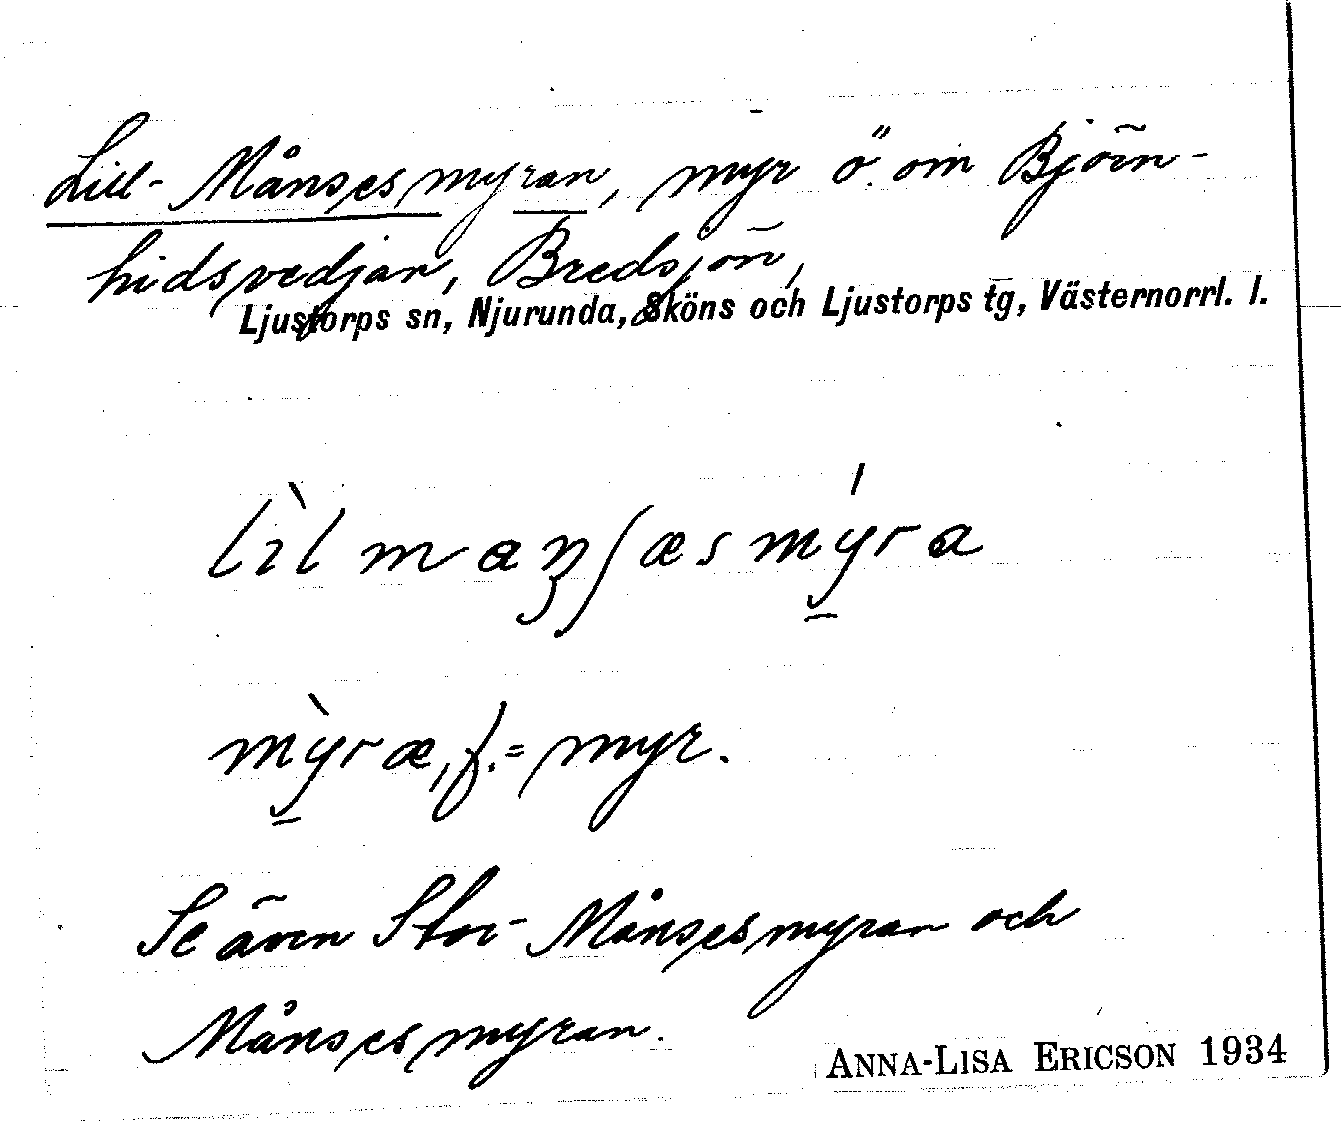 Lill-Månsesmyran, myr ö. om Björn-
hidsvedjan, Bredsjön,
Ljustorps sn, Njurunda, Sköns och Ljustorps tg, Västernorrl. l.
lìlmaɳʃæsmýra
mỳræ, f. = myr.
Se även Stor-Månsesmyran och
Månsesmyran.
ANNA-LISA ERICSON 1934